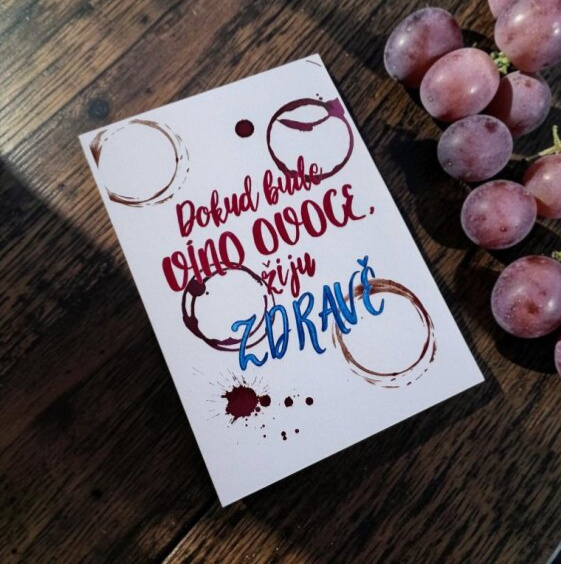 Dokud bude
VÍNO OVOCE,
žiju
ZDRAVĚ